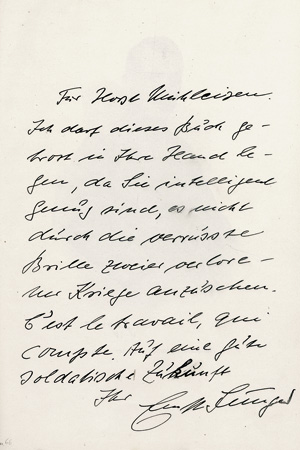 Für Horst Mühleisen.
Ich darf dieses Buch ge-
trost in Ihre Hand le-
gen, da Sie intelligent
genug sind, es nicht
durch die verrüsste
Brille zweier verlore-
ner Kriege anzuschen.
C'est le travail, qui
compte. Auf eine gute
soldatische Zukunft
Ihr Ernst Jünger